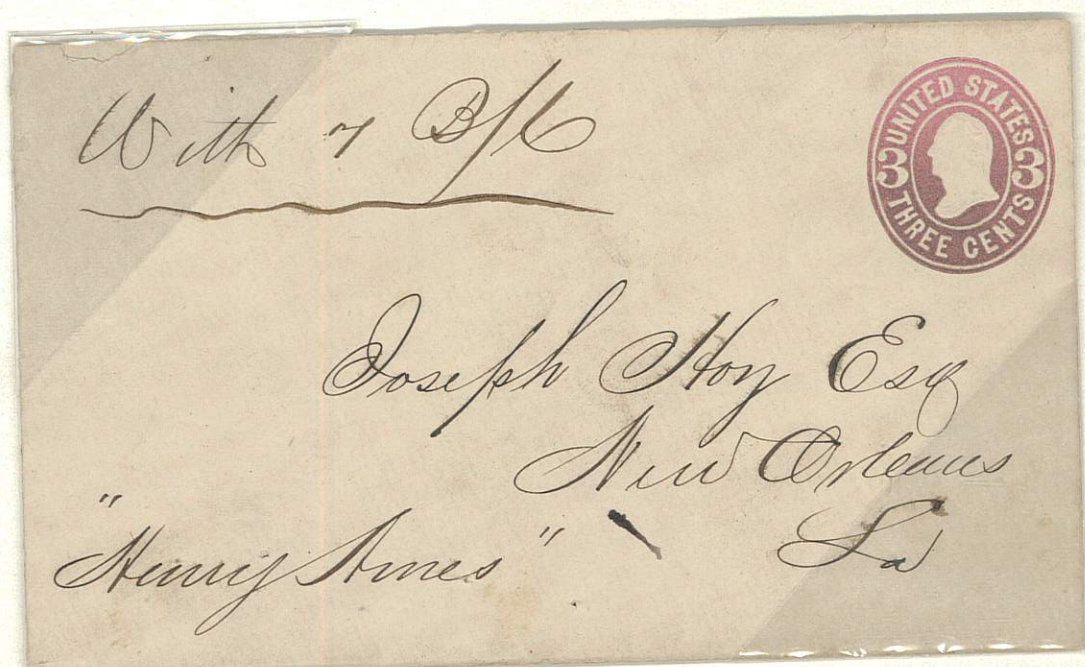 With 7 B/L
UNITED STATES
3 3
THREE CENTS
Joseph Hoy Esq
New Orleans
La
"Henry Ames"